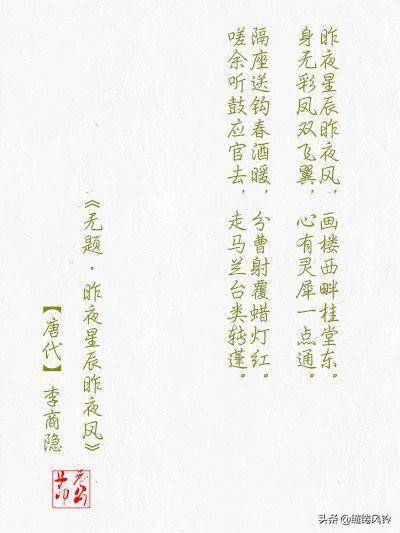 昨夜星辰昨夜风，画楼西畔桂堂东。
身无彩凤双飞翼，心有灵犀一点通。
隔座送钩春酒暖，分曹射覆蜡灯红。
嗟余听鼓应官去，走马兰台类转蓬。
《无题·昨夜星辰昨夜风》
【唐代】李商隐
头条 @缱绻风铃